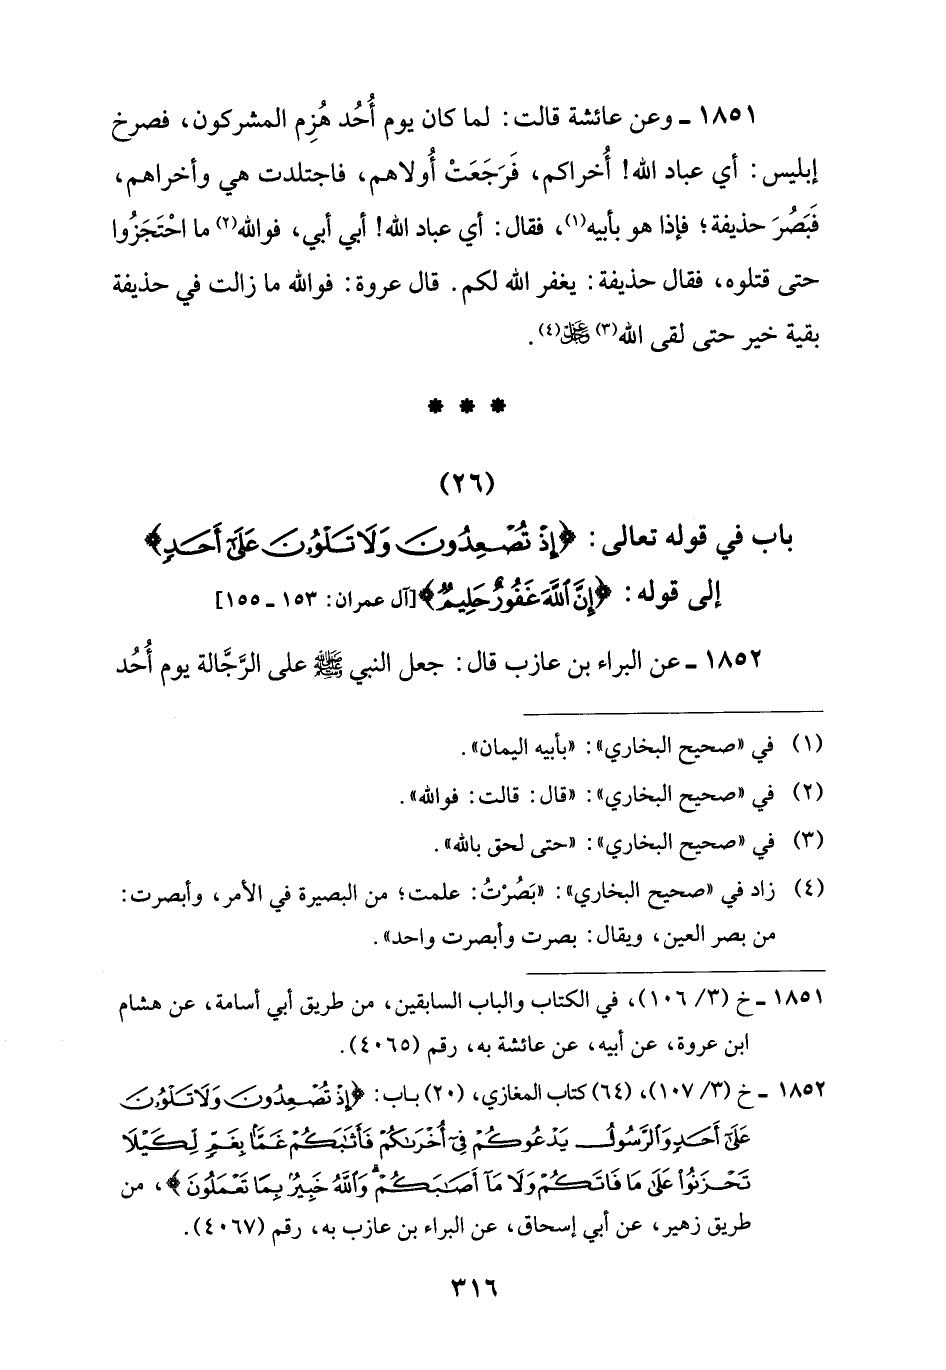 ١٨٥١ ـ وعن عائشة قالت: لما كان يوم أُحُد هُزِم المشركون، فصرخ
إبليس: أي عباد الله! أُخراكم، فَرَجَعَتْ أُولاهم، فاجتلدت هي وأخراهم،
فَبَصُرَ حذيفة؛ فإذا هو بأبيه(١)، فقال: أي عباد الله! أبي أبي، فوالله(٢) ما احْتَجَزُوا
حتى قتلوه، فقال حذيفة: يغفر الله لكم. قال عروة: فوالله ما زالت في حذيفة
بقية خير حتى لقى الله(٣) عَزَّ وَجَلَّ(٤).
* * *
(٢٦)
باب في قوله تعالى: ﴿إِذْ تُصْعِدُونَ وَلَا تَلْوُۥنَ عَلَىٰٓ أَحَدٍ﴾
إلى قوله: ﴿إِنَّ ٱللَّهَ غَفُورٌ حَلِيمٌ﴾ [آل عمران: ١٥٣ ـ ١٥٥]
١٨٥٢ ـ عن البراء بن عازب قال: جعل النبي ﷺ على الرَّجَّالة يوم أُحُد
(١) في «صحيح البخاري»: «بأبيه اليمان».
(٢) في «صحيح البخاري»: «قال: قالت: فوالله».
(٣) في «صحيح البخاري»: «حتى لحق بالله».
(٤) زاد في «صحيح البخاري»: «بَصُرْتُ: علمت؛ من البصيرة في الأمر، وأبصرت:
من بصر العين، ويقال: بصرت وأبصرت واحد».
١٨٥١ ـ خ (٣/ ١٠٦)، في الكتاب والباب السابقين، من طريق أبي أسامة، عن هشام
ابن عروة، عن أبيه، عن عائشة به، رقم (٤٠٦٥).
١٨٥٢ ـ خ (٣/ ١٠٧)، (٦٤) كتاب المغازي، (٢٠) باب: ﴿إِذْ تُصْعِدُونَ وَلَا تَلْوُۥنَ
عَلَىٰٓ أَحَدٍ وَٱلرَّسُولُ يَدْعُوكُمْ فِىٓ أُخْرَىٰكُمْ فَأَثَٰبَكُمْ غَمًّۢا بِغَمٍّ لِّكَيْلَا
تَحْزَنُوا۟ عَلَىٰ مَا فَاتَكُمْ وَلَا مَآ أَصَٰبَكُمْ ۗ وَٱللَّهُ خَبِيرٌۢ بِمَا تَعْمَلُونَ﴾، من
طريق زهير، عن أبي إسحاق، عن البراء بن عازب به، رقم (٤٠٦٧).
٣١٦